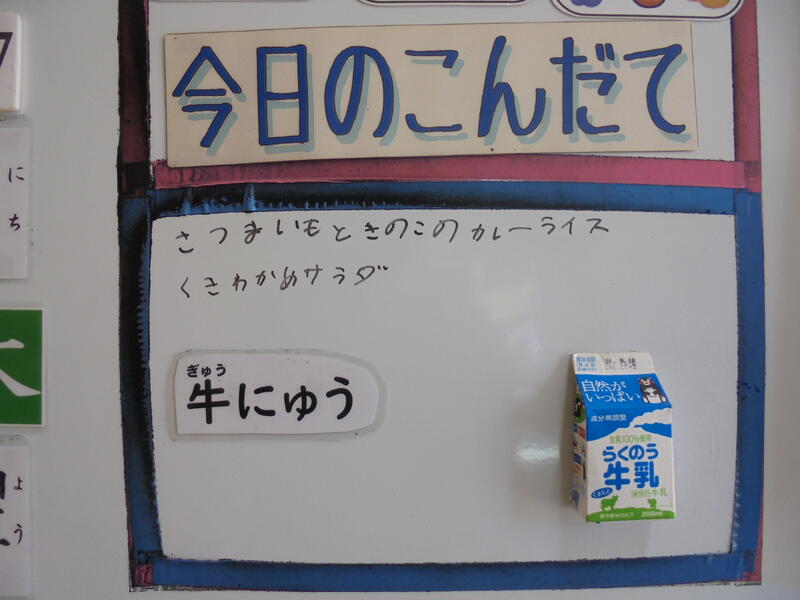 今日のこんだて
さつまいもときのこのカレーライス
くきわかめサラダ
ぎゅう
牛にゅう
自然が
いっぱい
成分無調整
生乳100%使用
らくのう
牛乳
種類別 牛乳
200ml
7
に
ち
よ
う